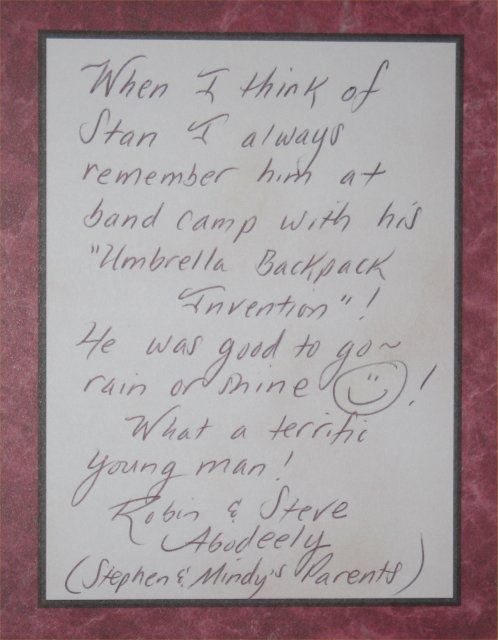 When I think of
Stan I always
remember him at
band camp with his
"Umbrella Backpack
Invention"!
He was good to go~
rain or shine ☺!
What a terrific
young man!
Robin & Steve
Abodeely
(Stephen & Mindy's Parents)